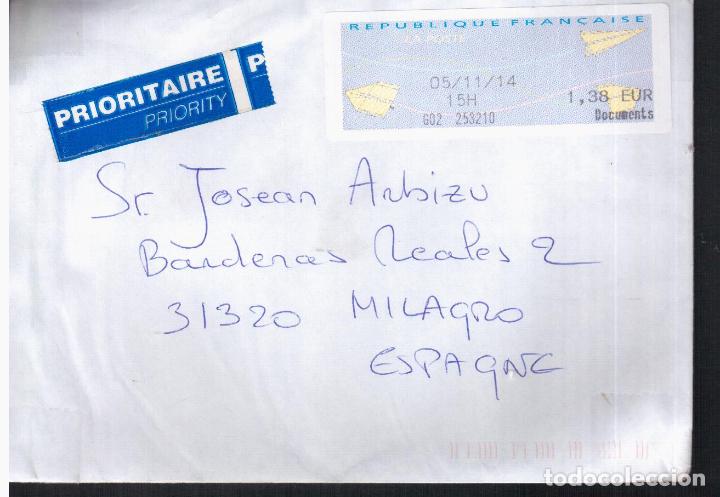 REPUBLIQUE FRANÇAISE
LA POSTE
05/11/14
15H
1,38 EUR
G02 253210
Documents
PRIORITAIRE P
PRIORITY
Sr. Josean Arbizu
Bardenas Reales 2
31320 MILAGRO
ESPAGNE
todocoleccion.net